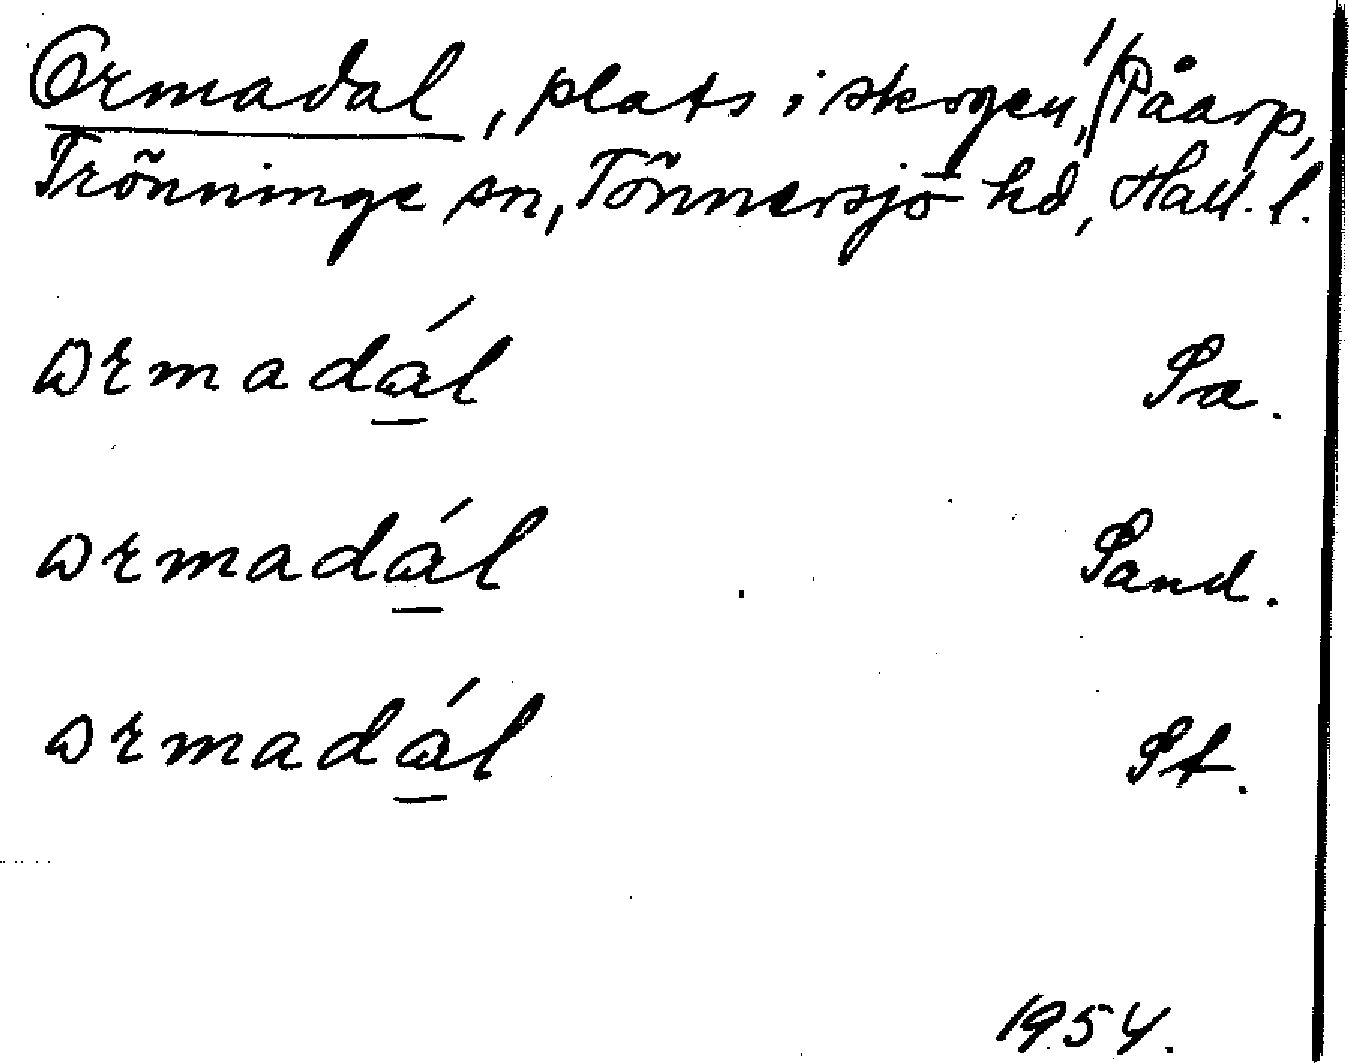 Ormadal, plats i skogen, Påarp,
Trönninge sn, Tönnersjö hd, Hall. l.
ormadál Pa.
ormadál Sand.
ormadál St.
1954.